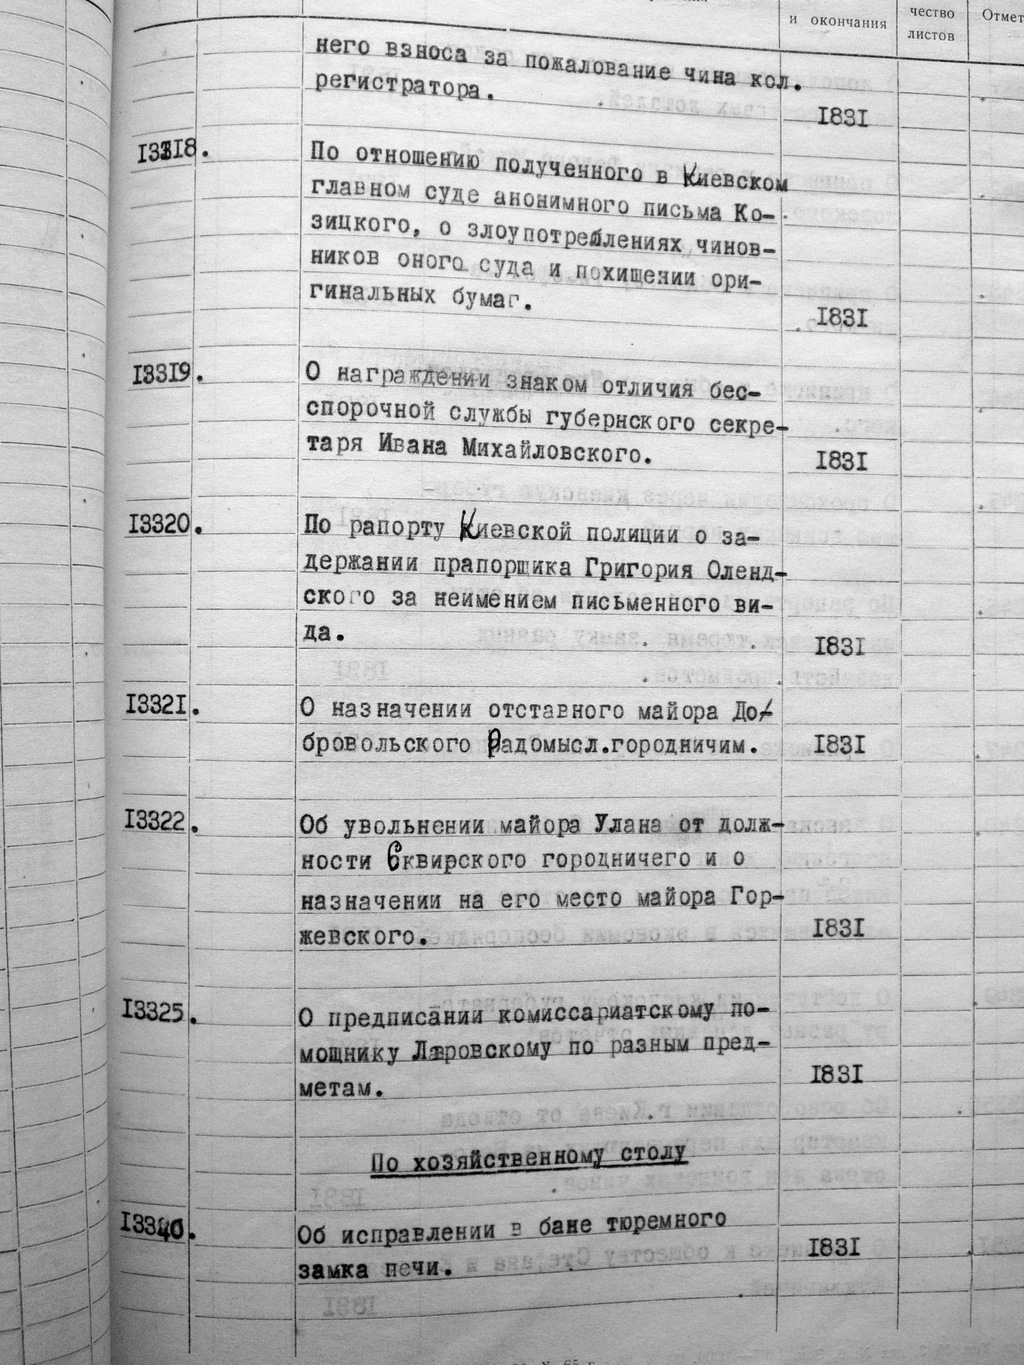 и окончания
чество
листов
Отмет
него взноса за пожалование чина кол.
регистратора.
I83I
I33I8.
По отношению полученного в Киевском
главном суде анонимного письма Ко-
зицкого, о злоупотреблениях чинов-
ников оного суда и похищении ори-
гинальных бумаг.
I83I
I33I9.
О награждении знаком отличия бес-
спорочной службы губернского секре-
таря Ивана Михайловского.
I83I
I3320.
По рапорту Киевской полиции о за-
держании прапорщика Григория Оленд-
ского за неимением письменного ви-
да.
I83I
I332I.
О назначении отставного майора До-
бровольского Радомысл.городничим.
I83I
I3322.
Об увольнении майора Улана от долж-
ности Сквирского городничего и о
назначении на его место майора Гор-
жевского.
I83I
I3325.
О предписании комиссариатскому по-
мощнику Ляровскому по разным пред-
метам.
I83I
По хозяйственному столу
I3340.
Об исправлении в бане тюремного
замка печи.
I83I